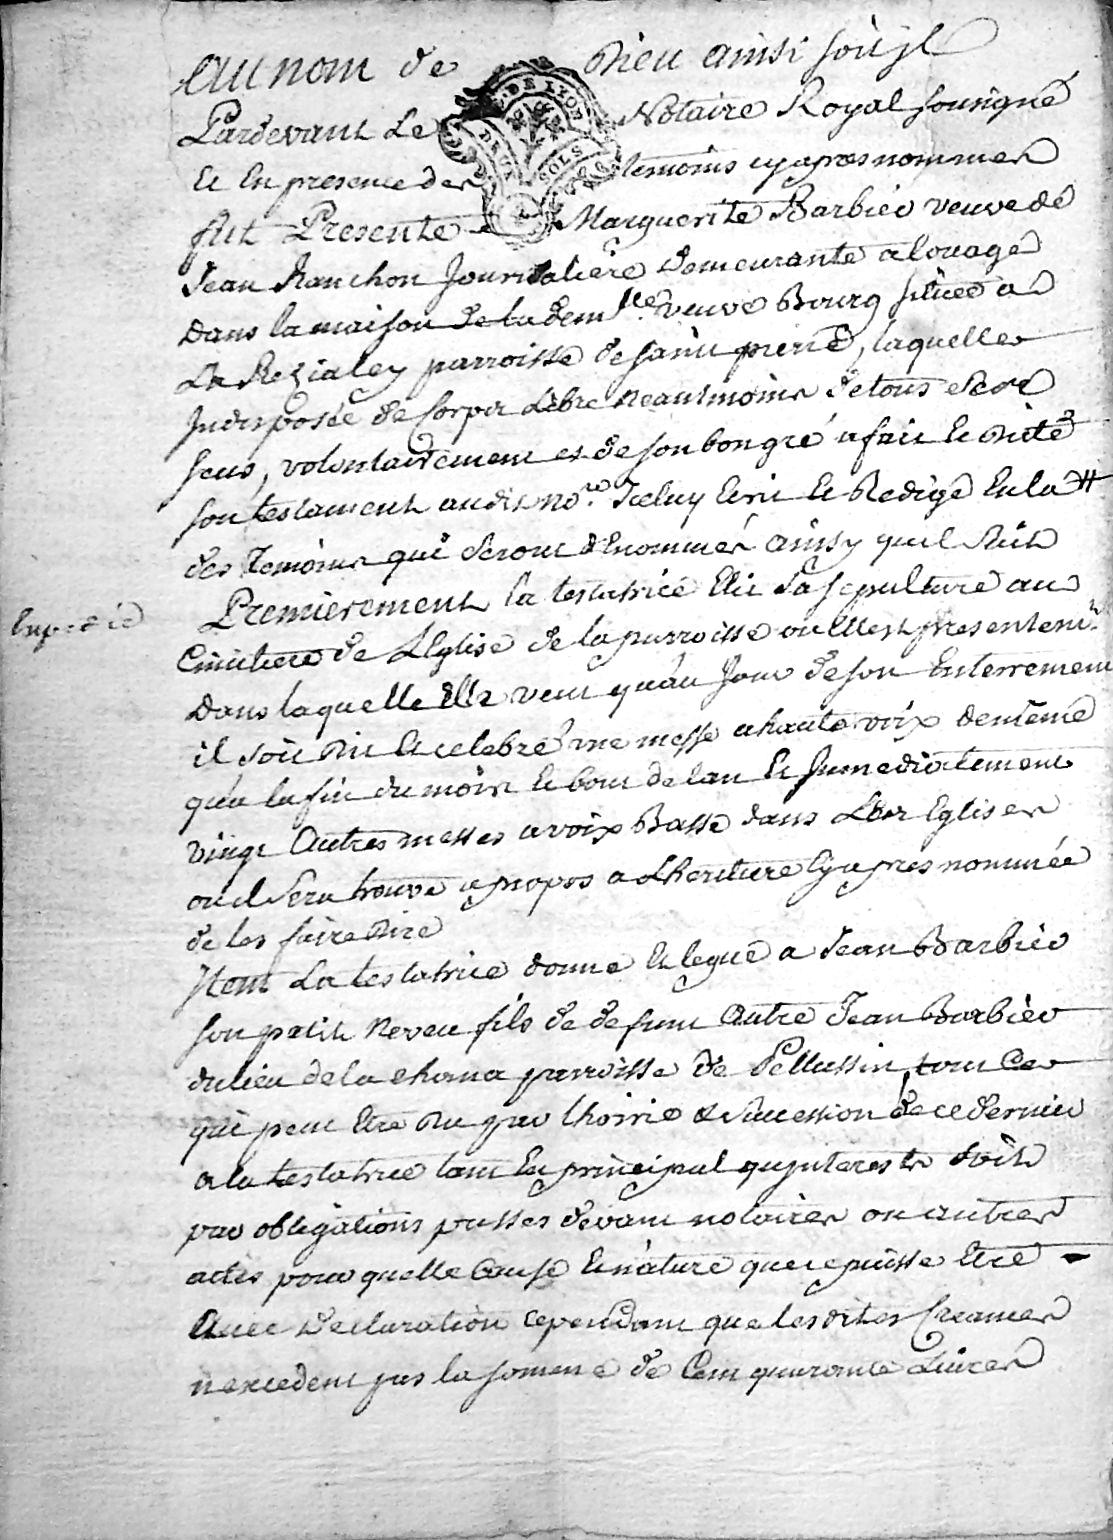 Au nom de Dieu ainsi soit jl
Pardevant Le Notaire Royal soussigné
Et En presence des temoins cy apres nommes
fut Presente Marguerite Barbier veuve de
Jean Ranchon Journaliere demeurante a louage
Dans la maison de la dem.lle veuve Bourg située a
La Rezialey parroisse de saint pierre, laquelle
Indisposée de Corps Libre neantmoins de tous ses
sens, volontairement et de son bon gré a fait et Dicté
son testament audit no.re Iceluy Ecrit Et Redigé En la #
des Temoins qui seront denommés ainsy quil suit
Expedié
Premierement la testatrice Elit sa sepulture au
Cimitiere de LEglise de la parroisse ou Elle est presentem.t
Dans laquelle Elle veut quau Jour de son Enterrement
il soit Dit Et celebré une messe a haute voix de meme
qua la fin du mois le bout de lan Et Immediatement
vingt Autres messes a voix Basse dans Les Eglises
ou il sera trouvé a propos a Lheritiere Cy apres nommée
de les faire Dire
Item La testatrice donne Et legue a Jean Barbier
son petit Neveu fils de defunt Autre Jean Barbier
du lieu de la chana parroisse de Pellussin, tout Ce
qui peut Etre Du par lhoirie & Succession de ce dernier
a la testatrice tant En principal qu jnterests soit
par obligations passes devant notaires ou autres
actes pour quelle Cause Et nature que ce puisse Etre
Avec Declaration cependant que les dites Creances
nexcedent pas la somme de Cent quarante Livres
DE LYON
DEUX SOLS